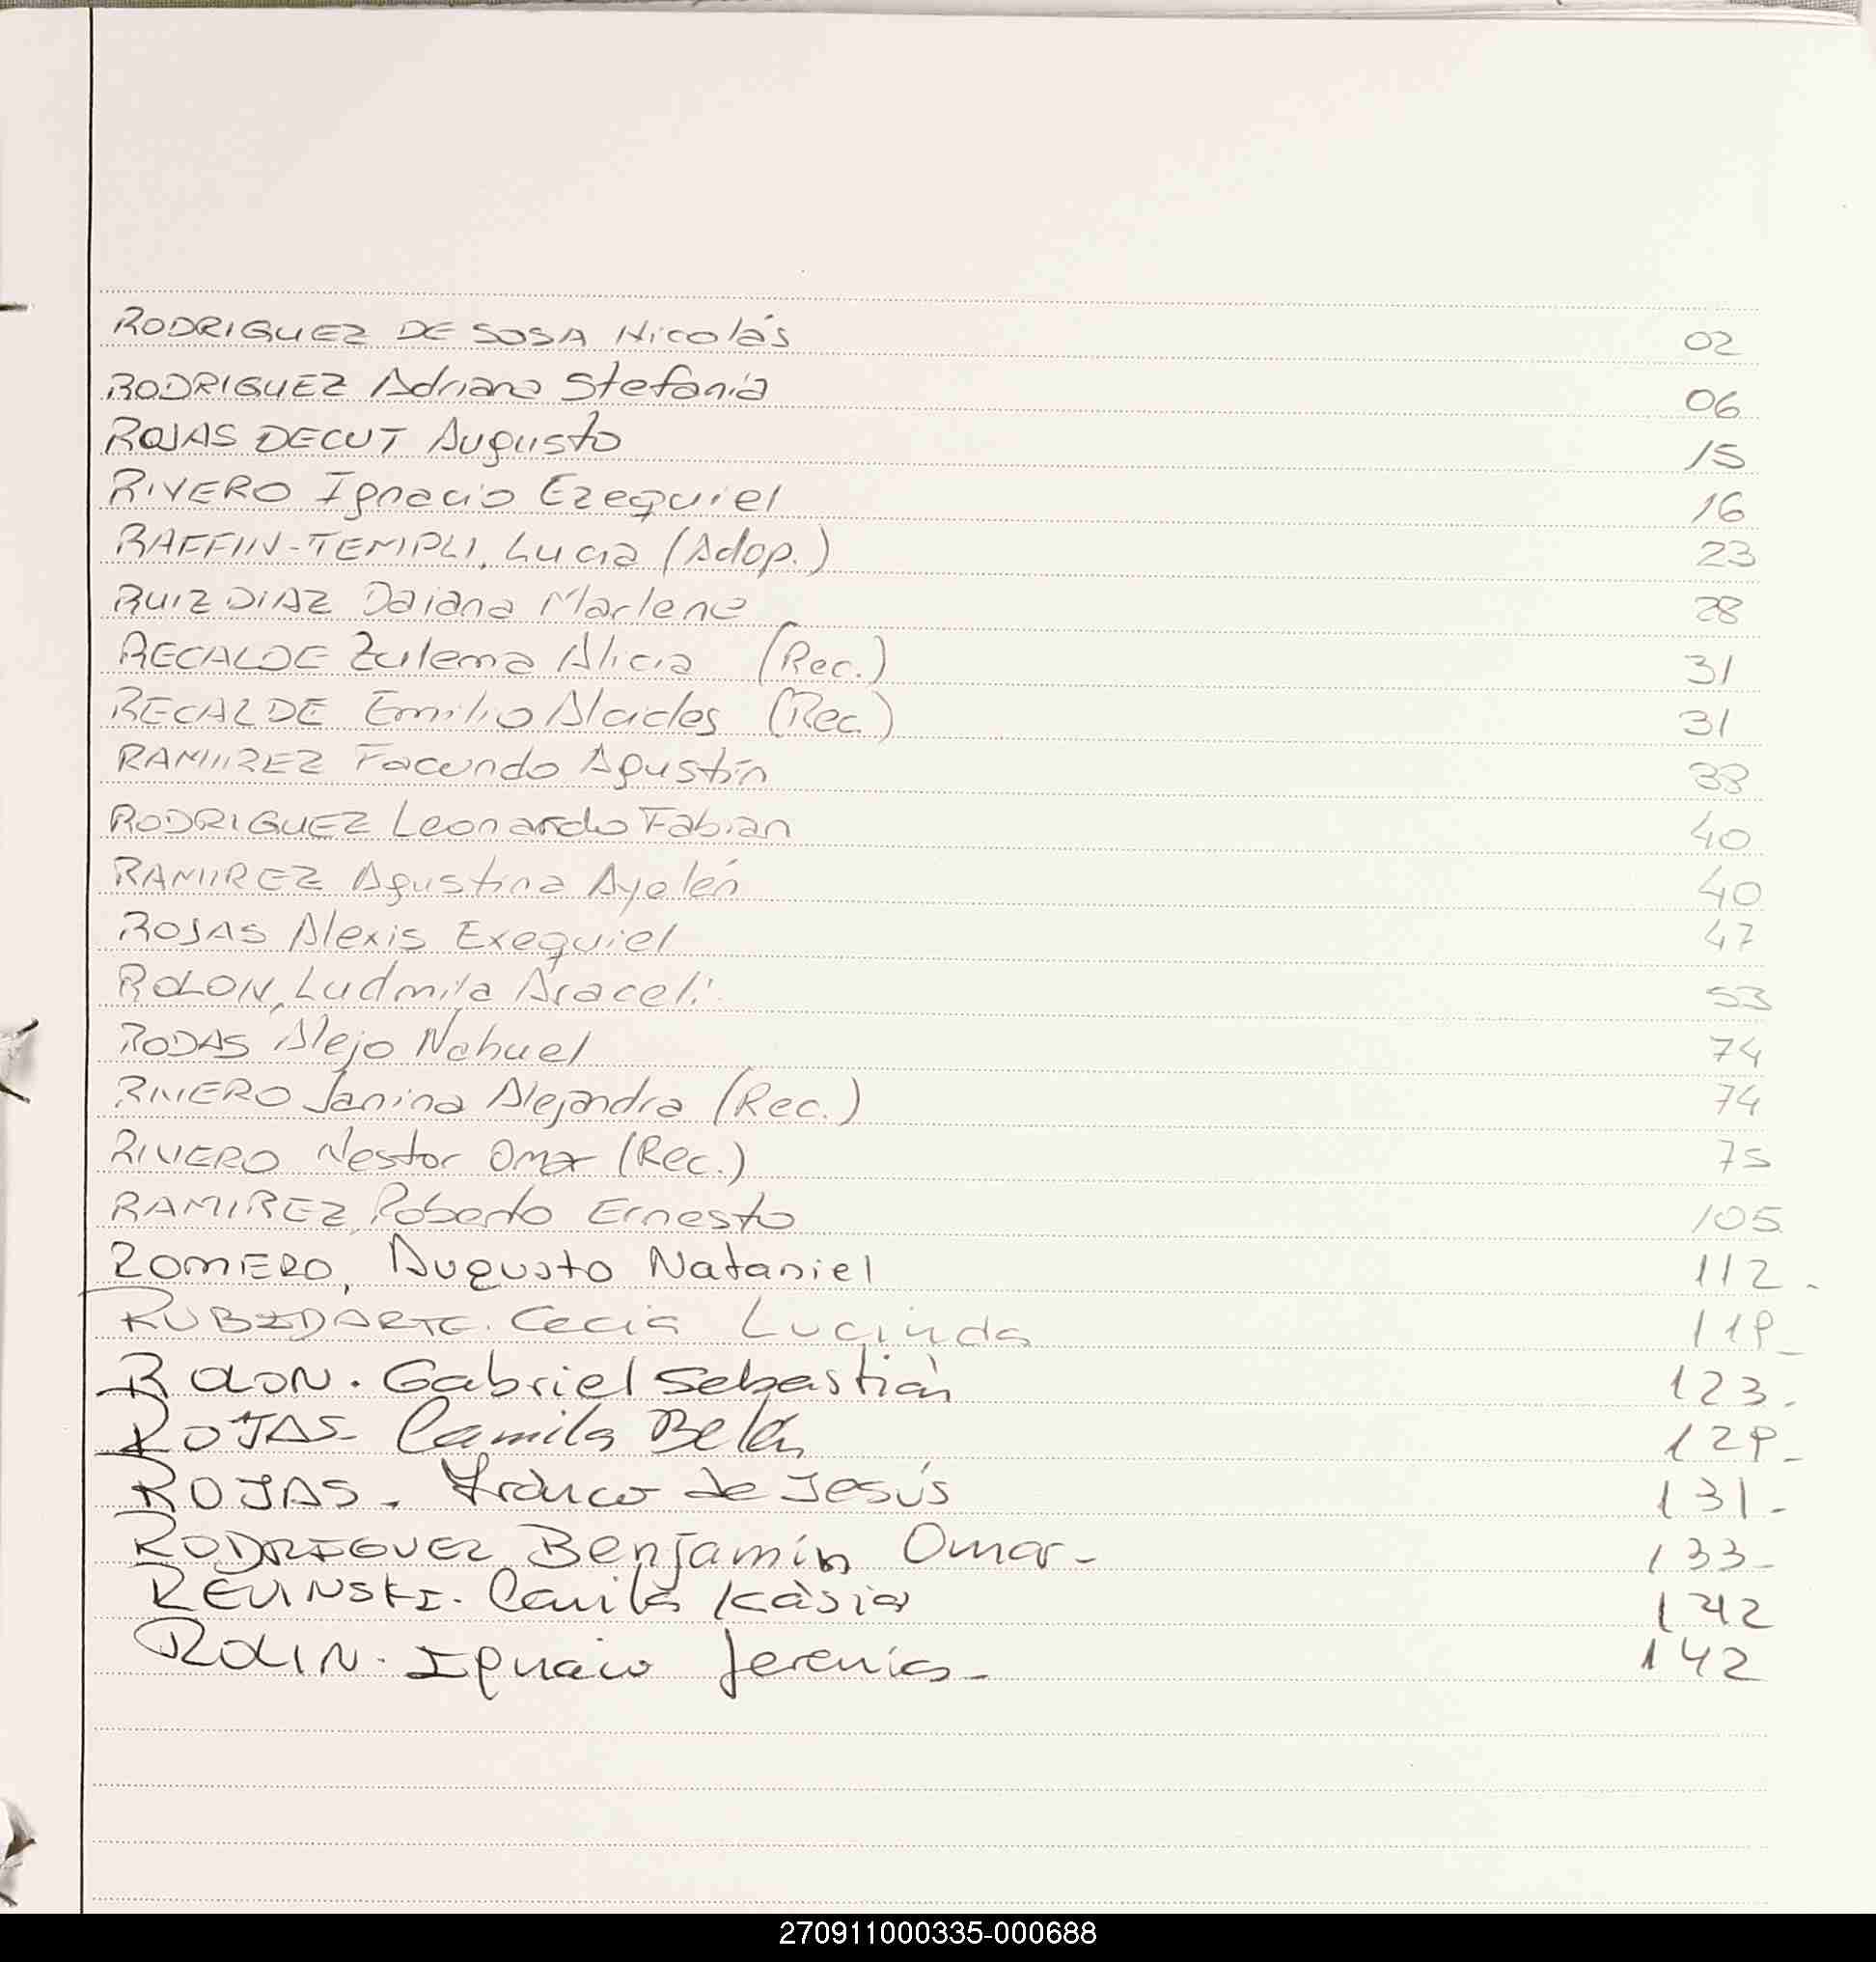 RODRIGUEZ DE SOSA Nicolás 02
RODRIGUEZ Adriana Stefanía 06
ROJAS DECUT Augusto 15
RIVERO Ignacio Ezequiel 16
RAFFIN-TEMPLI, Lucia (Adop.) 23
RUIZ DIAZ Daiana Marlene 28
RECALDE Zulema Alicia (Rec.) 31
RECALDE Emilio Alcides (Rec.) 31
RAMIREZ Facundo Agustín 38
RODRIGUEZ Leonardo Fabian 40
RAMIREZ Agustina Ayelén 40
ROJAS Alexis Exequiel 47
ROLON, Ludmila Araceli 53
RODAS Alejo Nahuel 74
RIVERO Janina Alejandra (Rec.) 74
RIVERO Nestor Omar (Rec.) 75
RAMIREZ, Roberto Ernesto 105
ROMERO, Augusto Nataniel 112.
Lucinda 119_
ROLON. Gabriel Sebastián 123.
ROJAS- Camila Belén 129_
ROJAS. Franco de Jesús 131-
RODRIGUEZ, Benjamín Omar- 133-
REVINSKI. Camila Kàsia 142
ROLIN. Ignacio Jeremías- 142
270911000335-000688